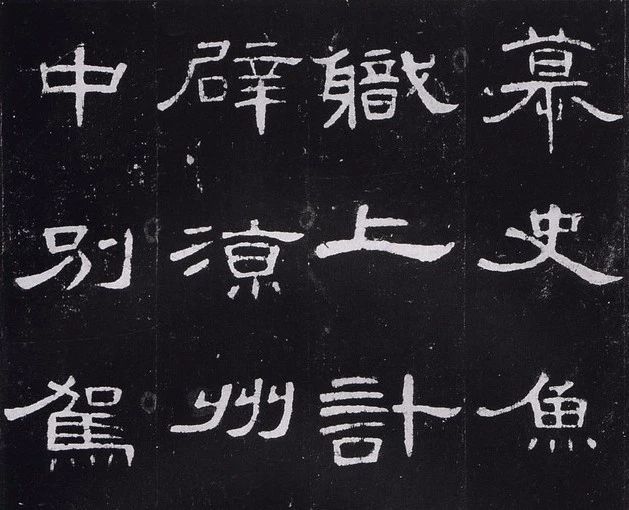 慕史魚
軄上計
辟涼州
中別駕